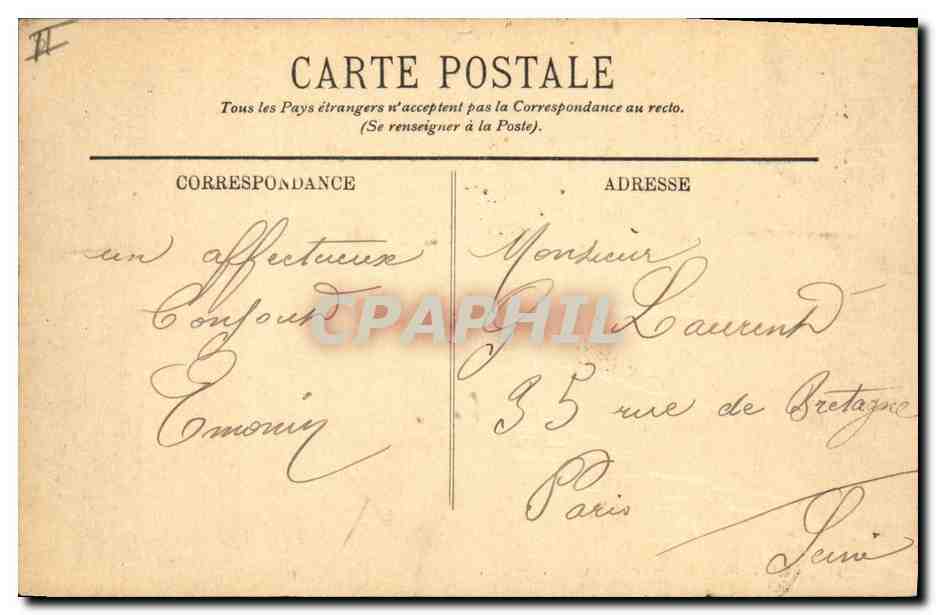 CARTE POSTALE
Tous les Pays étrangers n'acceptent pas la Correspondance au recto.
(Se renseigner à la Poste).
CORRESPONDANCE
un affectueux
bonjour
CPAPHIL
ADRESSE
Monsieur
G Laurent
35 rue de Bretagne
Paris
Seine